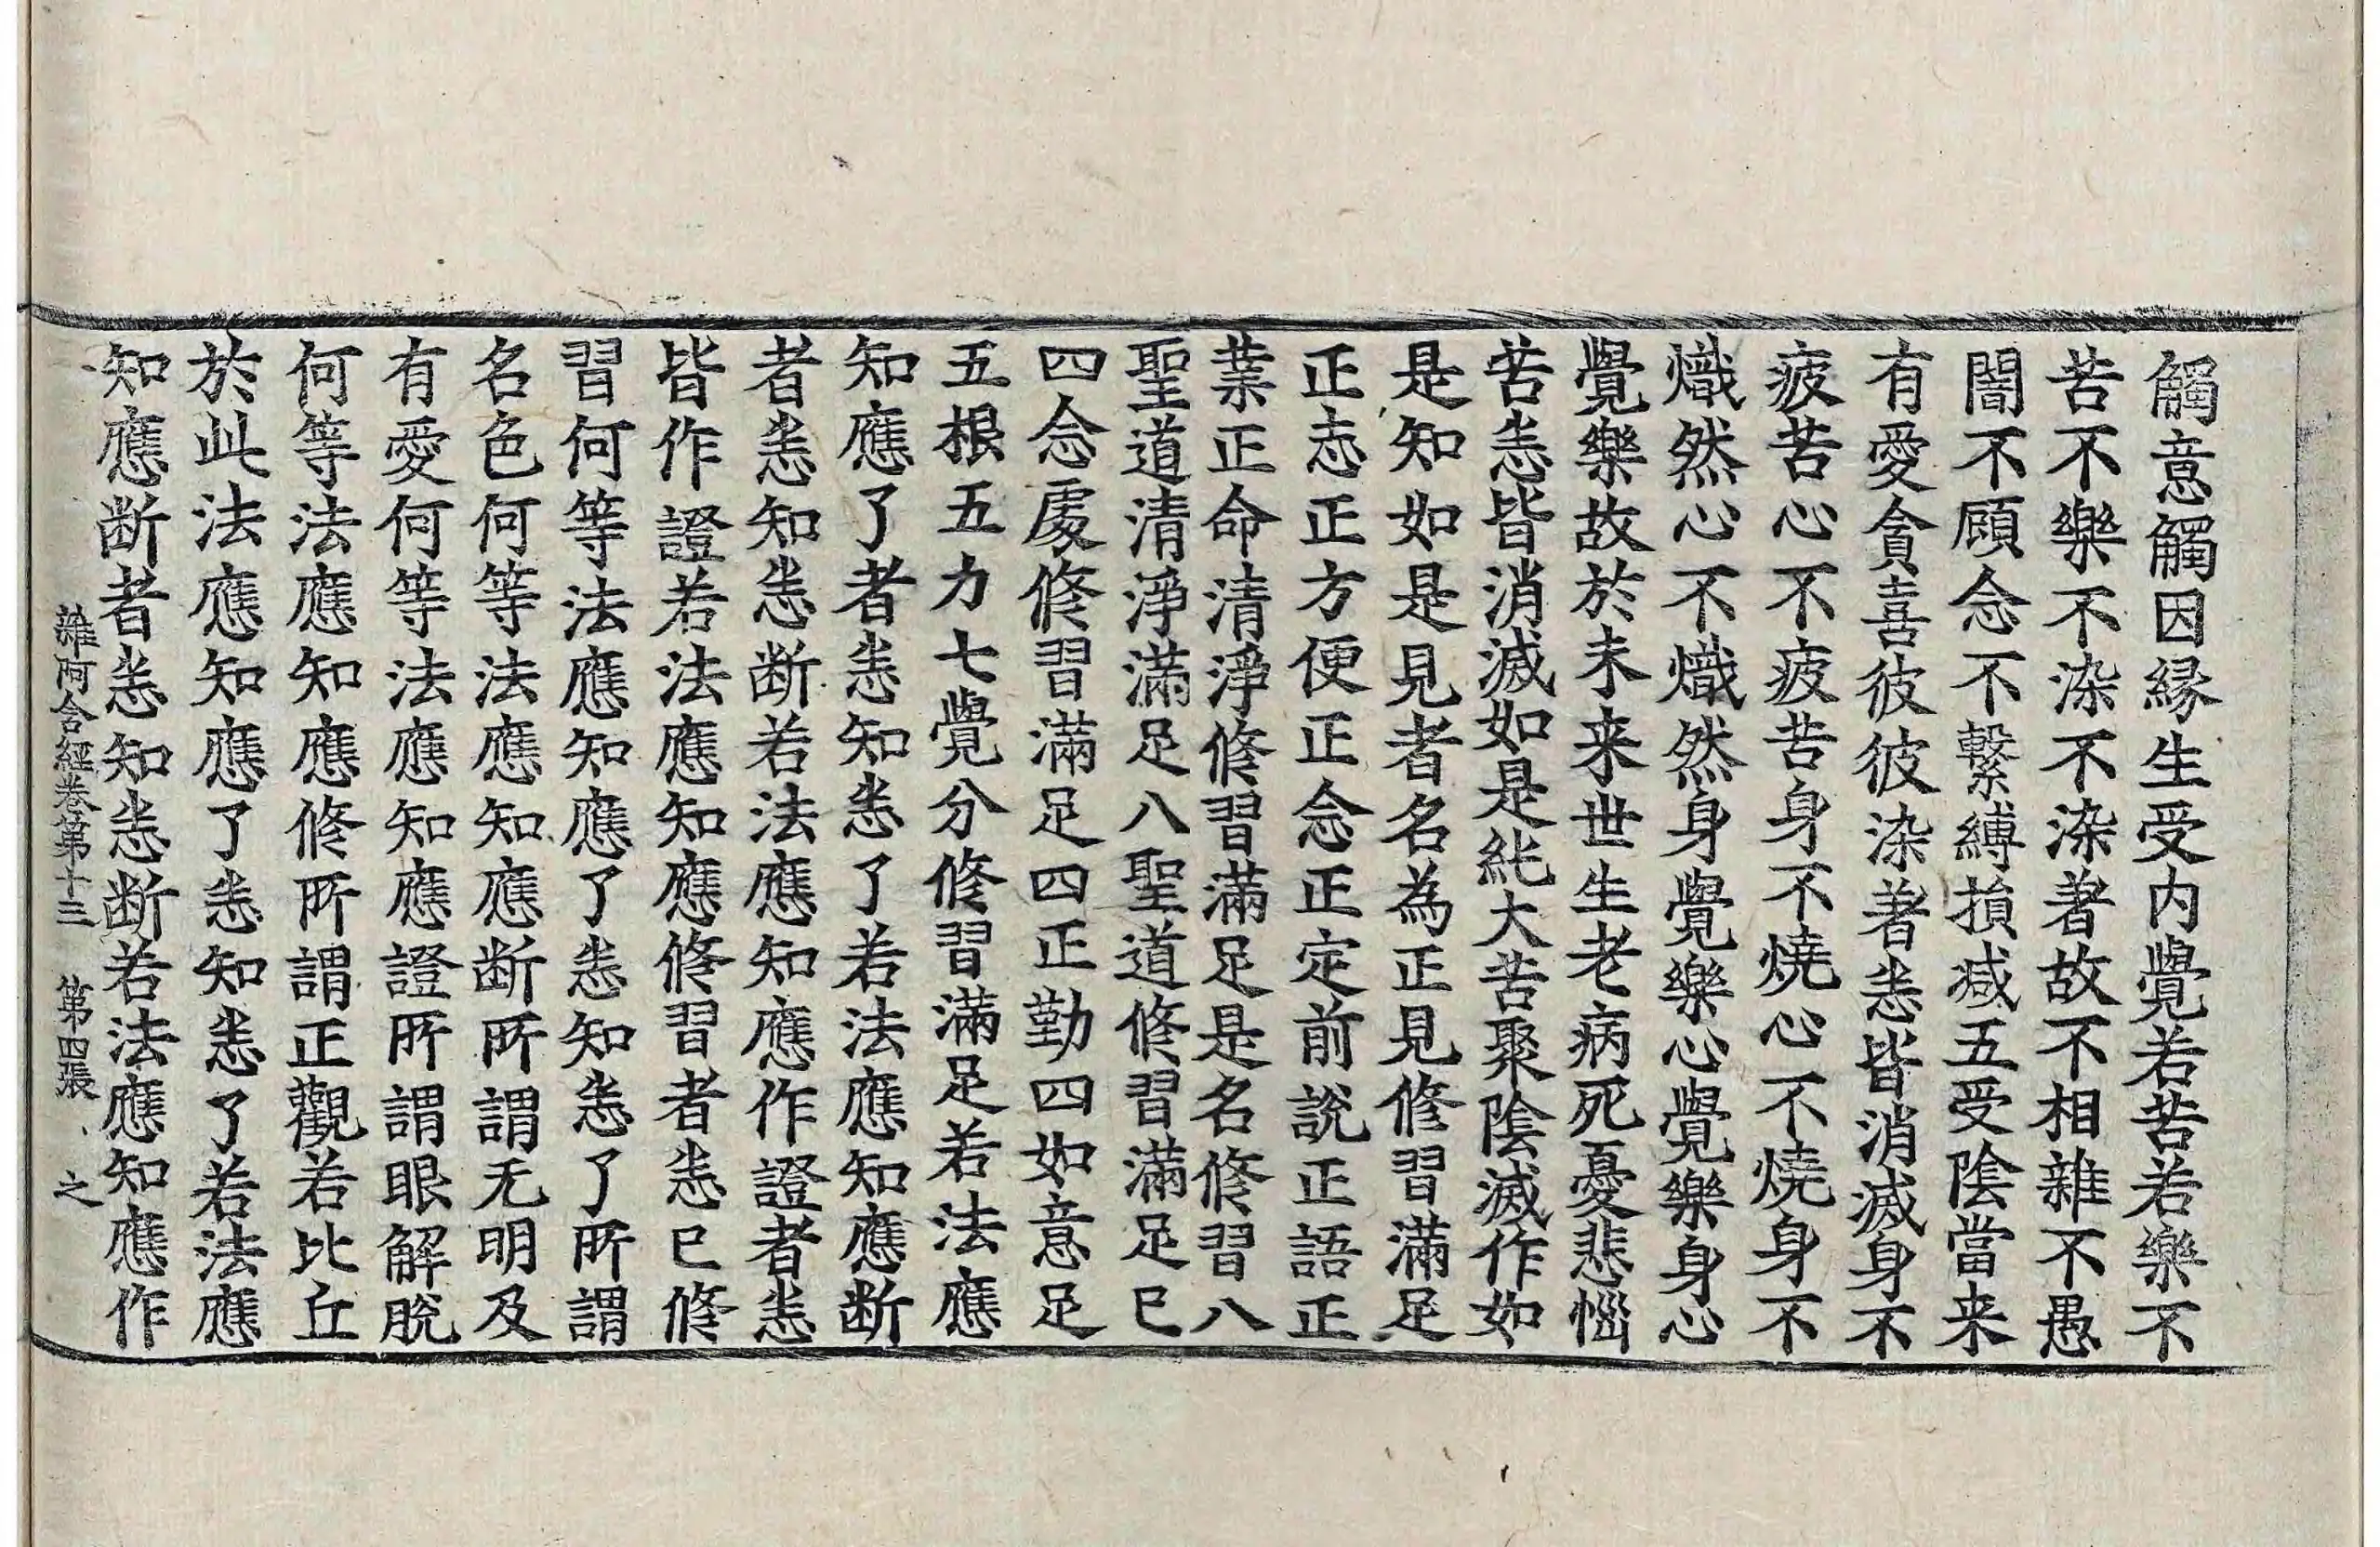 觸意觸因緣生受内覺若苦若樂不
苦不樂不染不染著故不相雜不愚
闇不顧念不繫縛損減五受陰當来
有愛貪喜彼彼染著悉皆消滅身不
疲苦心不疲苦身不燒心不燒身不
熾然心不熾然身覺樂心覺樂身心
覺樂故於未来世生老病死憂悲惱
苦悉皆消滅如是純大苦聚陰滅作如
是知如是見者名為正見修習滿足
正志正方便正念正定前說正語正
業正命清淨修習滿足是名修習八
聖道清淨滿足八聖道修習滿足已
四念處修習滿足四正勤四如意足
五根五力七覺分修習滿足若法應
知應了者悉知悉了若法應知應断
者悉知悉断若法應知應作證者悉
皆作證若法應知應修習者悉已修
習何等法應知應了悉知悉了所謂
名色何等法應知應断所謂无明及
有愛何等法應知應證所謂眼解脫
何等法應知應修所謂正觀若比丘
於此法應知應了悉知悉了若法應
知應断者悉知悉断若法應知應作
雜阿含經卷第十三 第四張 之